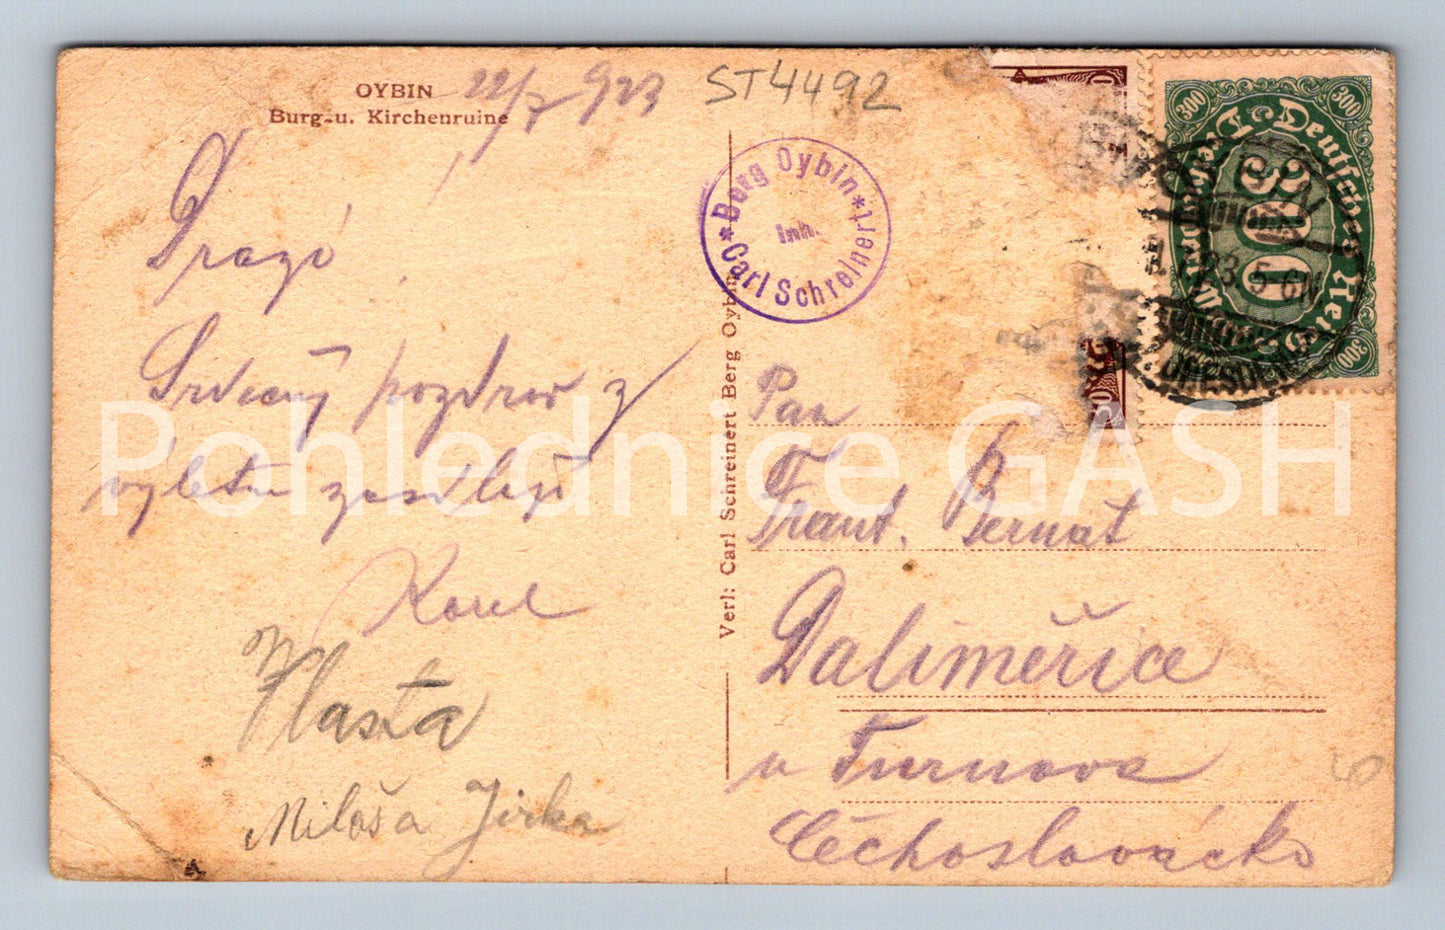 OYBIN
Burg-u. Kirchenruine
22/7 923
ST4492
Drazí!
Srdečný pozdrav z
výletu zasílají
Karel
Vlasta
Miloš a Jirka
*Berg Oybin*
Inh.
Carl Schreinert
Verl: Carl Schreinert Berg Oybin
Deutsches Reich
300
300
300
300
23. 5-6N
DRESDEN
Pan
Frant. Bernat
Daliměřice
u Turnova
Čechoslovácko
Pohlednice GASH